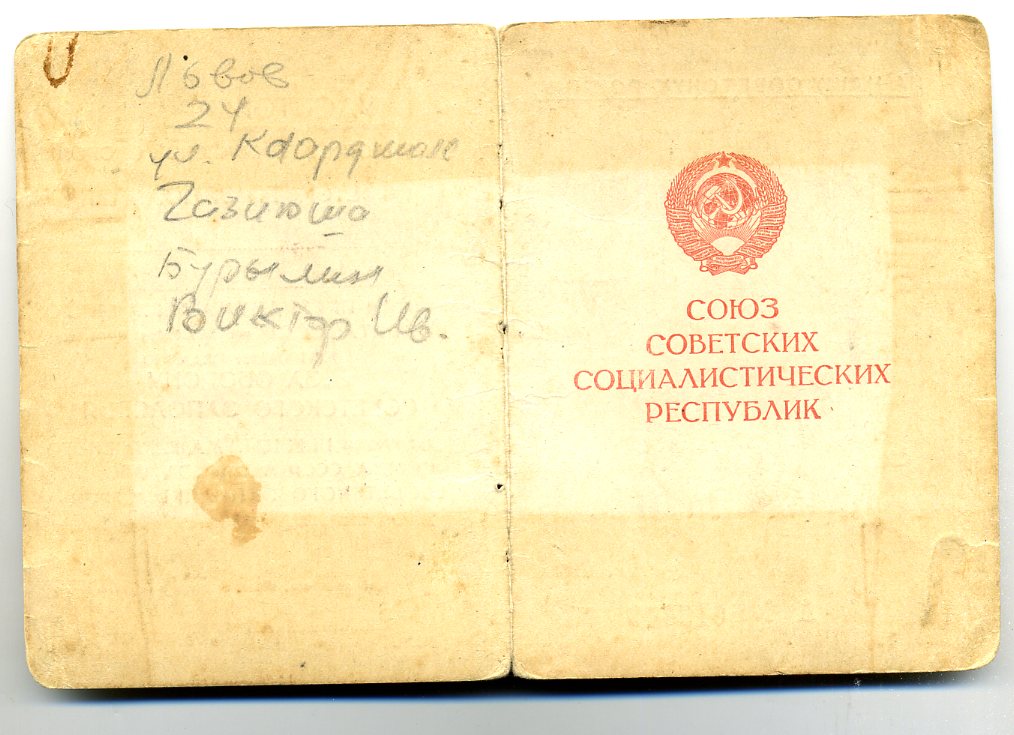 Львов
24
ул.
Бурылин
Виктор Ив.
СОЮЗ
СОВЕТСКИХ
СОЦИАЛИСТИЧЕСКИХ
РЕСПУБЛИК